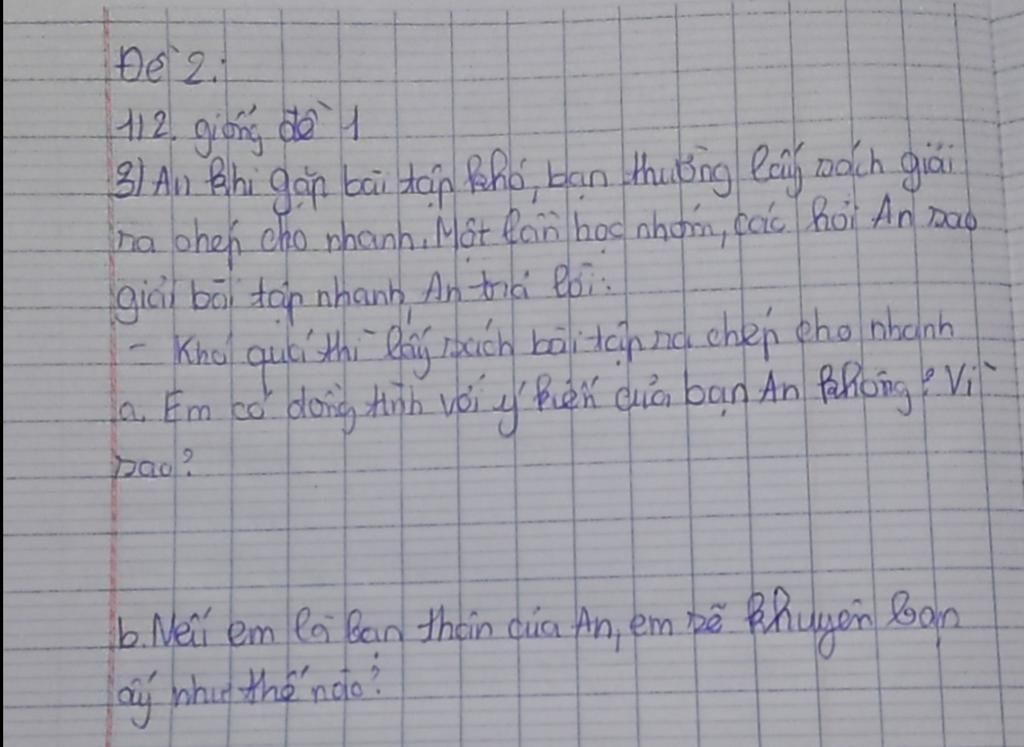 Đề 2:
1,2. giống đề 1
3) An khi gặp bài tập khó, bạn thường lấy sách giải
ra chép cho nhanh. Một lần học nhóm, các hỏi An sao
giải bài tập nhanh, An trả lời:
- Khó quá thì lấy sách bài tập ra chép cho nhanh
a. Em có đồng tình với ý kiến của bạn An không? Vì
sao?
b. Nếu em là bạn thân của An, em sẽ khuyên bạn
ấy như thế nào?